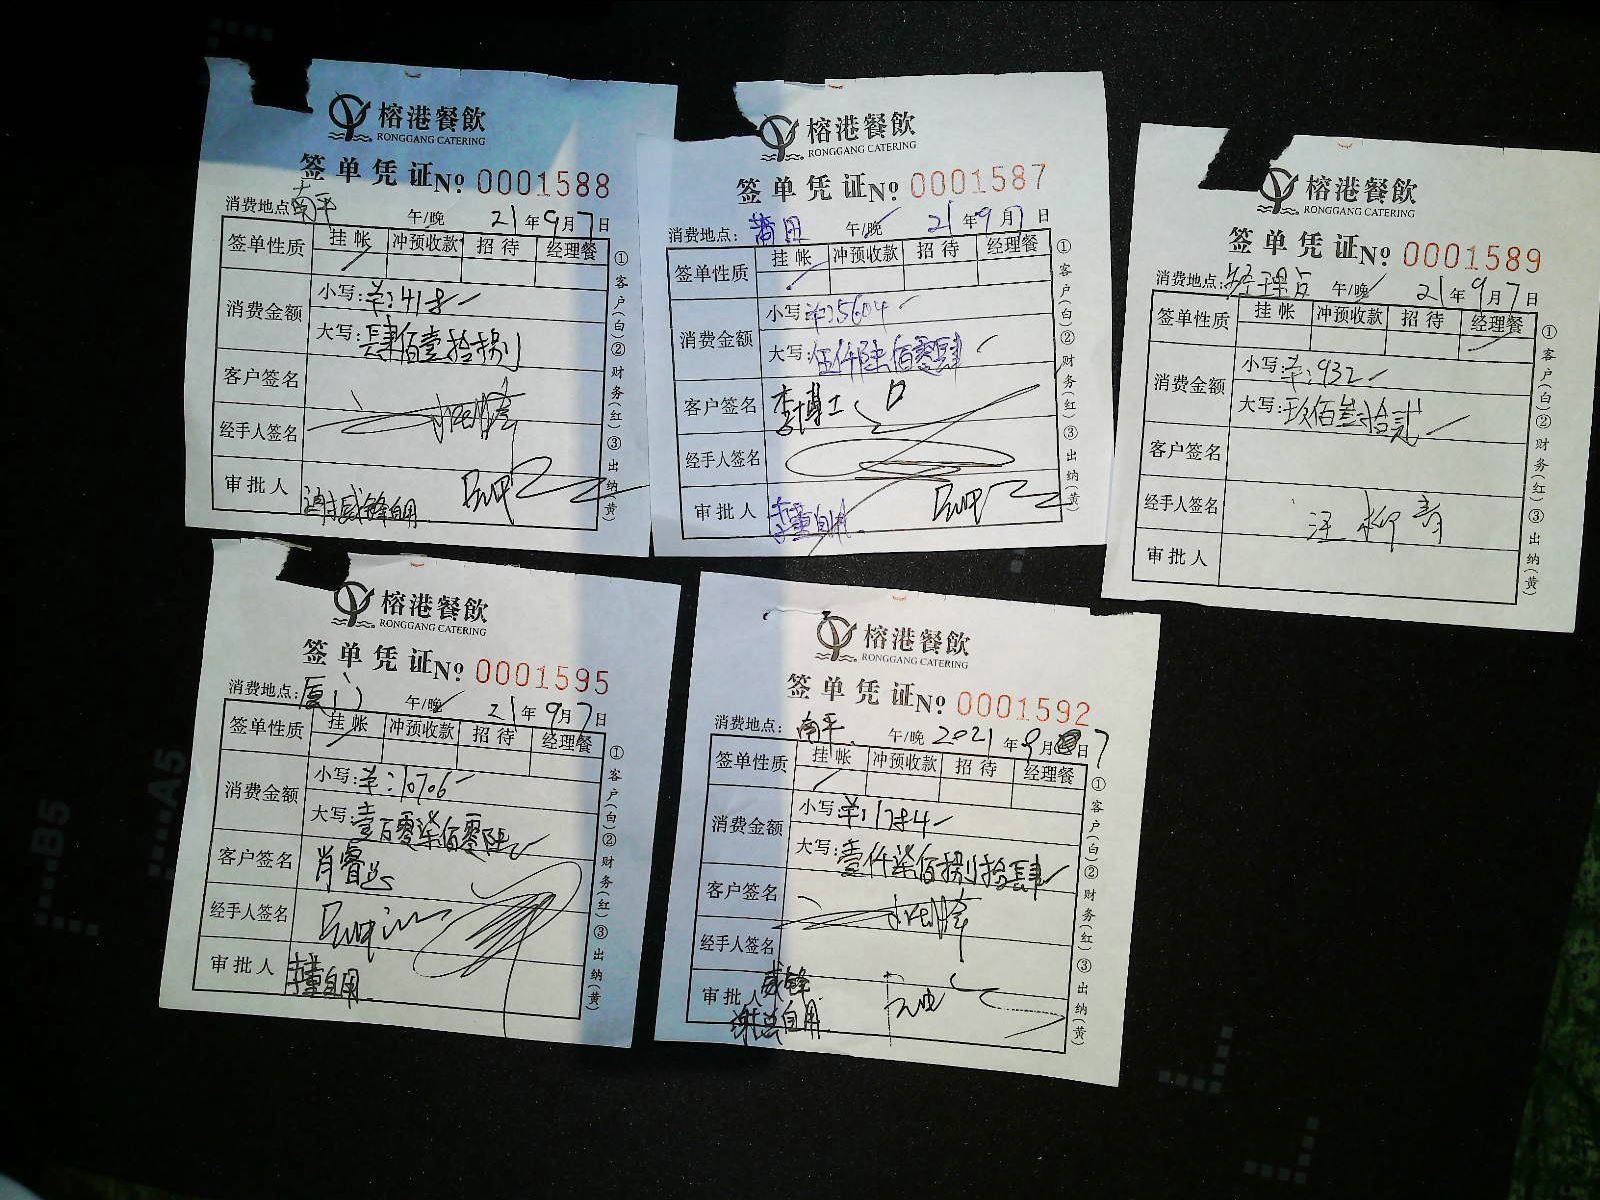 榕港餐飲
RONGGANG CATERING
签单凭证 № 0001588
消费地点:南平 午/晚 21年9月7日
签单性质 挂帐 冲预收款 招待 经理餐
消费金额
小写:¥:418
大写:肆佰壹拾捌
客户签名
经手人签名
审批人
①客户(白)②财务(红)③出纳(黄)
榕港餐飲
RONGGANG CATERING
签单凭证 № 0001587
消费地点:莆田 午/晚 21年9月7日
签单性质 挂帐 冲预收款 招待 经理餐
消费金额
小写:¥:5604
大写:伍仟陆佰零肆
客户签名 李博士
经手人签名
审批人 李董自用
①客户(白)②财务(红)③出纳(黄)
榕港餐飲
RONGGANG CATERING
签单凭证 № 0001589
消费地点:经理占 午/晚 21年9月7日
签单性质 挂帐 冲预收款 招待 经理餐
消费金额
小写:¥:932
大写:玖佰叁拾贰
客户签名
经手人签名 汪柳青
审批人
①客户(白)②财务(红)③出纳(黄)
榕港餐飲
RONGGANG CATERING
签单凭证 № 0001595
消费地点:厦门 午/晚 21年9月7日
签单性质 挂帐 冲预收款 招待 经理餐
消费金额
小写:¥:10706
大写:壹万零柒佰零陆
客户签名
经手人签名
审批人 李董自用
①客户(白)②财务(红)③出纳(黄)
榕港餐飲
RONGGANG CATERING
签单凭证 № 0001592
消费地点:南平 午/晚 2021年9月7日
签单性质 挂帐 冲预收款 招待 经理餐
消费金额
小写:¥:1784
大写:壹仟柒佰捌拾肆
客户签名
经手人签名
审批人 威锋
谢总自用
①客户(白)②财务(红)③出纳(黄)